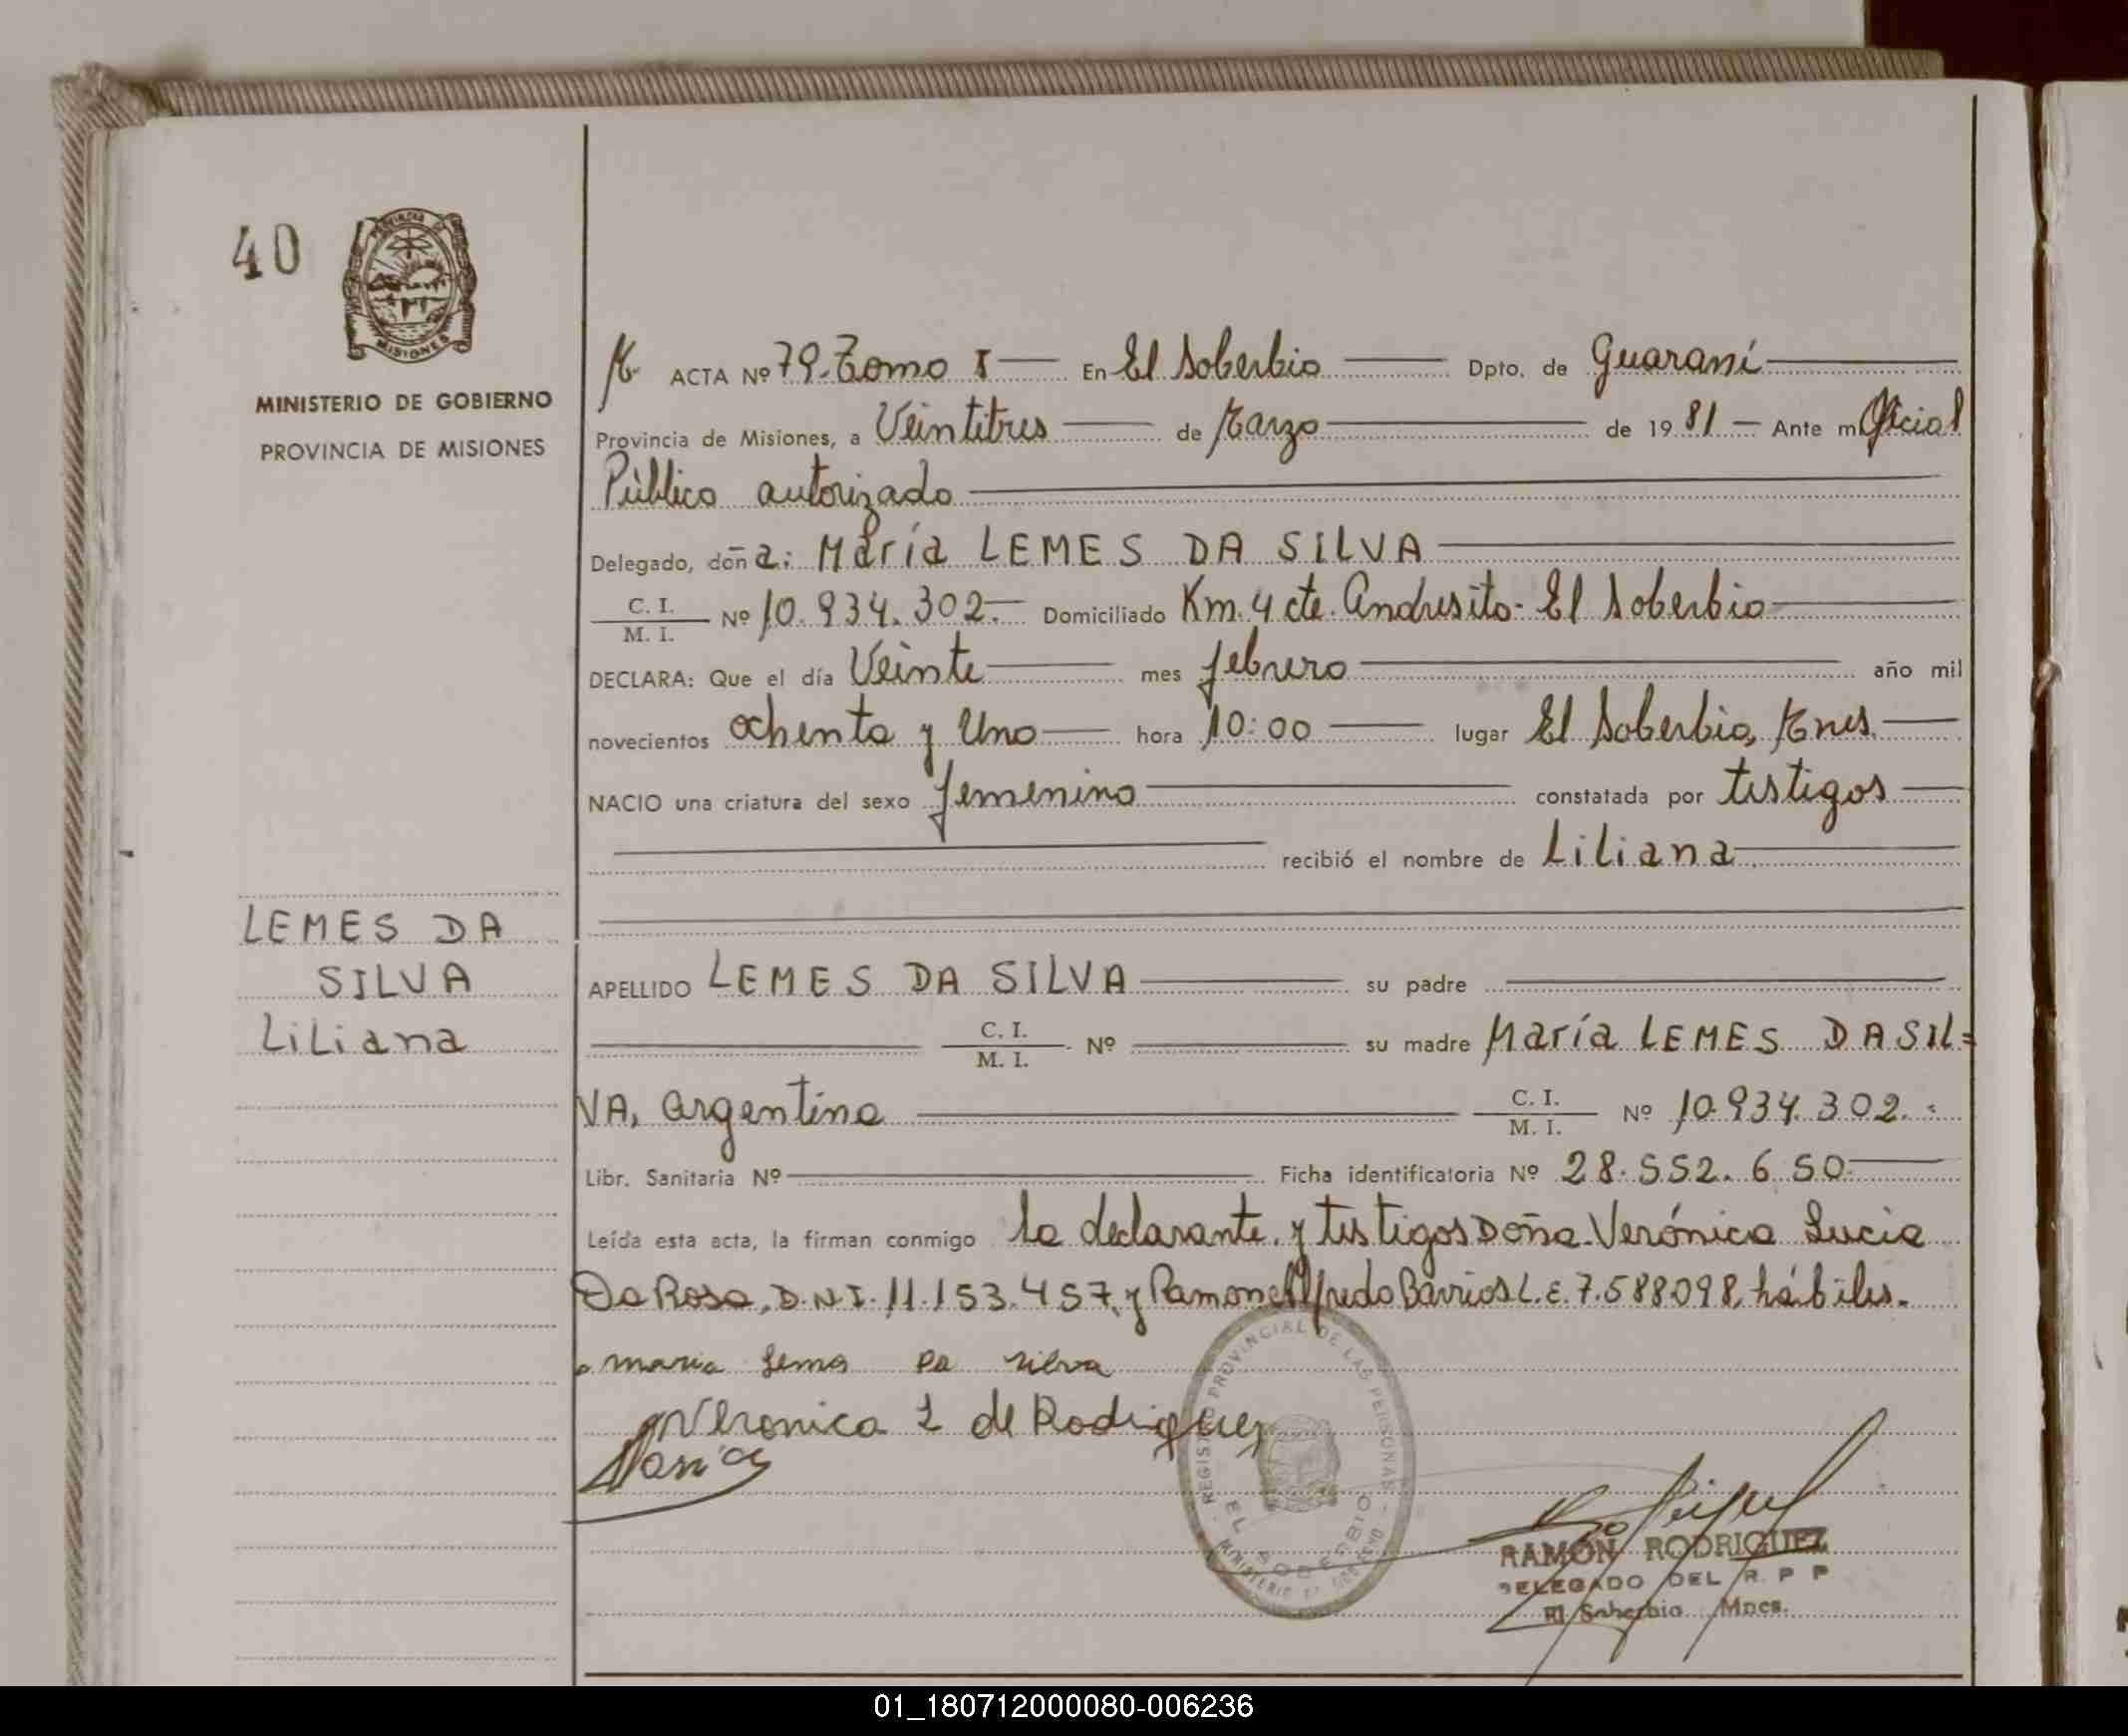 40
MISIONES
MINISTERIO DE GOBIERNO
PROVINCIA DE MISIONES
ACTA Nº 79. Tomo I En El Soberbio Dpto. de Guaraní
Provincia de Misiones, a Veintitres de Marzo de 1981 Ante mi Oficial
Público autorizado
Delegado, doña: María LEMES DA SILVA
C. I.
M. I. Nº 10.934.302.- Domiciliado Km. 4 cte. Andresito - El Soberbio
DECLARA: Que el día Veinte mes febrero año mil
novecientos ochenta y Uno hora 10:00 lugar El Soberbio, Mnes.
NACIO una criatura del sexo femenino constatada por testigos
recibió el nombre de Liliana
LEMES DA
SILVA
Liliana
APELLIDO LEMES DA SILVA su padre
C. I.
M. I. Nº su madre María LEMES DA SIL=
VA, argentina C. I.
M. I. Nº 10.934.302.-
Libr. Sanitaria Nº Ficha identificatoria Nº 28.552.650.
Leída esta acta, la firman conmigo la declarante y testigos Doña Verónica Lucia
Da Rosa, D.N.I. 11.153.457, y Ramon Alfredo Barrios L.E. 7.588.098, hábiles.
maria Lemes Da silva
Veronica L de Rodriguez
REGISTRO PROVINCIAL DE LAS PERSONAS
EL SOBERBIO
MINISTERIO DE GOBIERNO
RAMÓN RODRIGUEZ
DELEGADO DEL R. P P
El Soberbio Mnes.
01_180712000080-006236